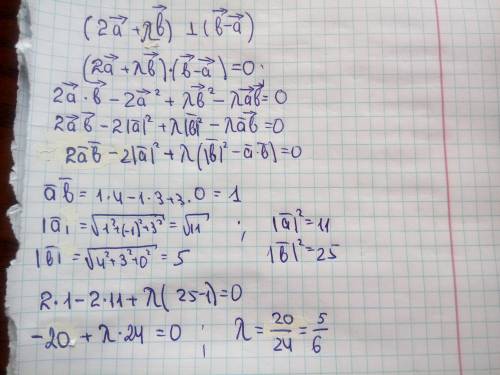 (2a⃗ + λb⃗) ⊥ (b⃗ - a⃗)
(2a⃗ + λb⃗)·(b⃗ - a⃗) = 0
2a⃗·b⃗ - 2a⃗² + λb⃗² - λa⃗b⃗ = 0
2a⃗b⃗ - 2|a⃗|² + λ|b⃗|² - λa⃗b⃗ = 0
2a⃗b⃗ - 2|a⃗|² + λ(|b⃗|² - a⃗·b⃗) = 0
a⃗b⃗ = 1·4 - 1·3 + 3·0 = 1
|a⃗| = √(1² + (-1)² + 3²) = √11 ; |a⃗|² = 11
|b⃗| = √(4² + 3² + 0²) = 5 |b⃗|² = 25
2·1 - 2·11 + λ(25-1) = 0
-20 + λ·24 = 0 ; λ = 20/24 = 5/6